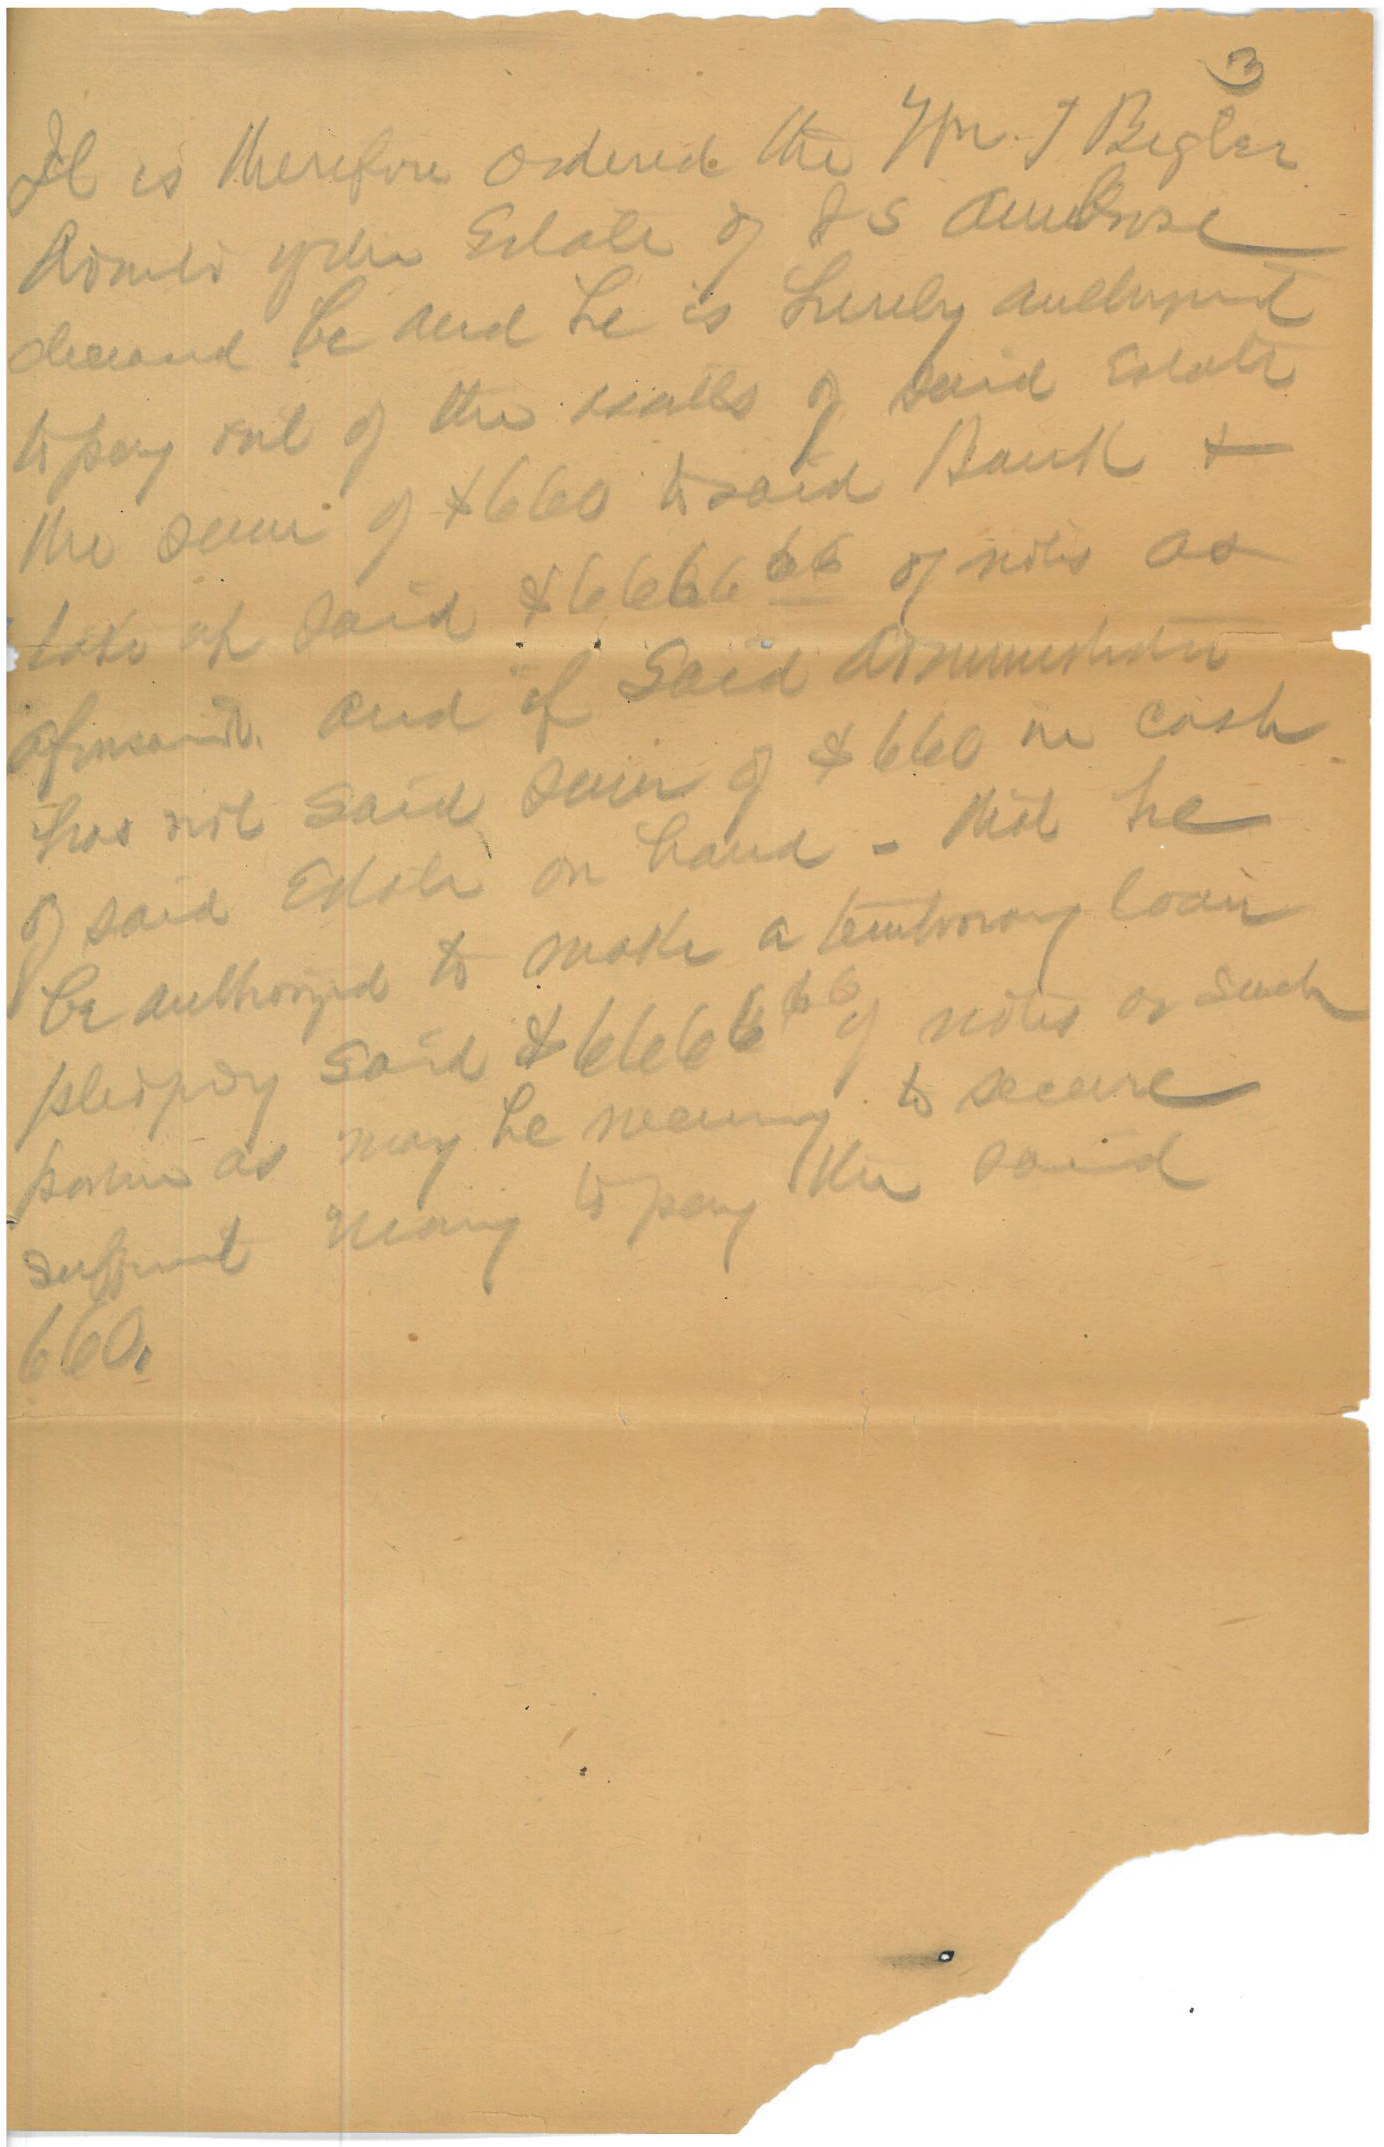 3
It is therefore ordered the Wm. J Bigler
Admr of the Estate of J S Ambrose
deceased be and he is hereby authorized
to pay out of the assets of said Estate
the sum of $660 to said Bank &
take up said $6666 66 of notes as
aforesaid. and if said Administrator
has not said sum of $660 in cash
of said Estate on hand - that he
be authorized to make a temporary loan
said $6666 66 of notes or such
portion as may be necessary to secure
sufficient money to pay the said
660.